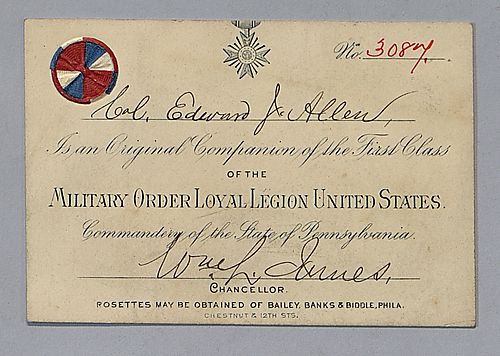 No. 3087.
Col. Edward J. Allen,
Is an Original Companion of the First Class
OF THE
MILITARY ORDER LOYAL LEGION UNITED STATES.
Commandery of the State of Pennsylvania.
Wm L. James,
CHANCELLOR.
ROSETTES MAY BE OBTAINED OF BAILEY, BANKS & BIDDLE, PHILA.
CHESTNUT & 12TH STS.